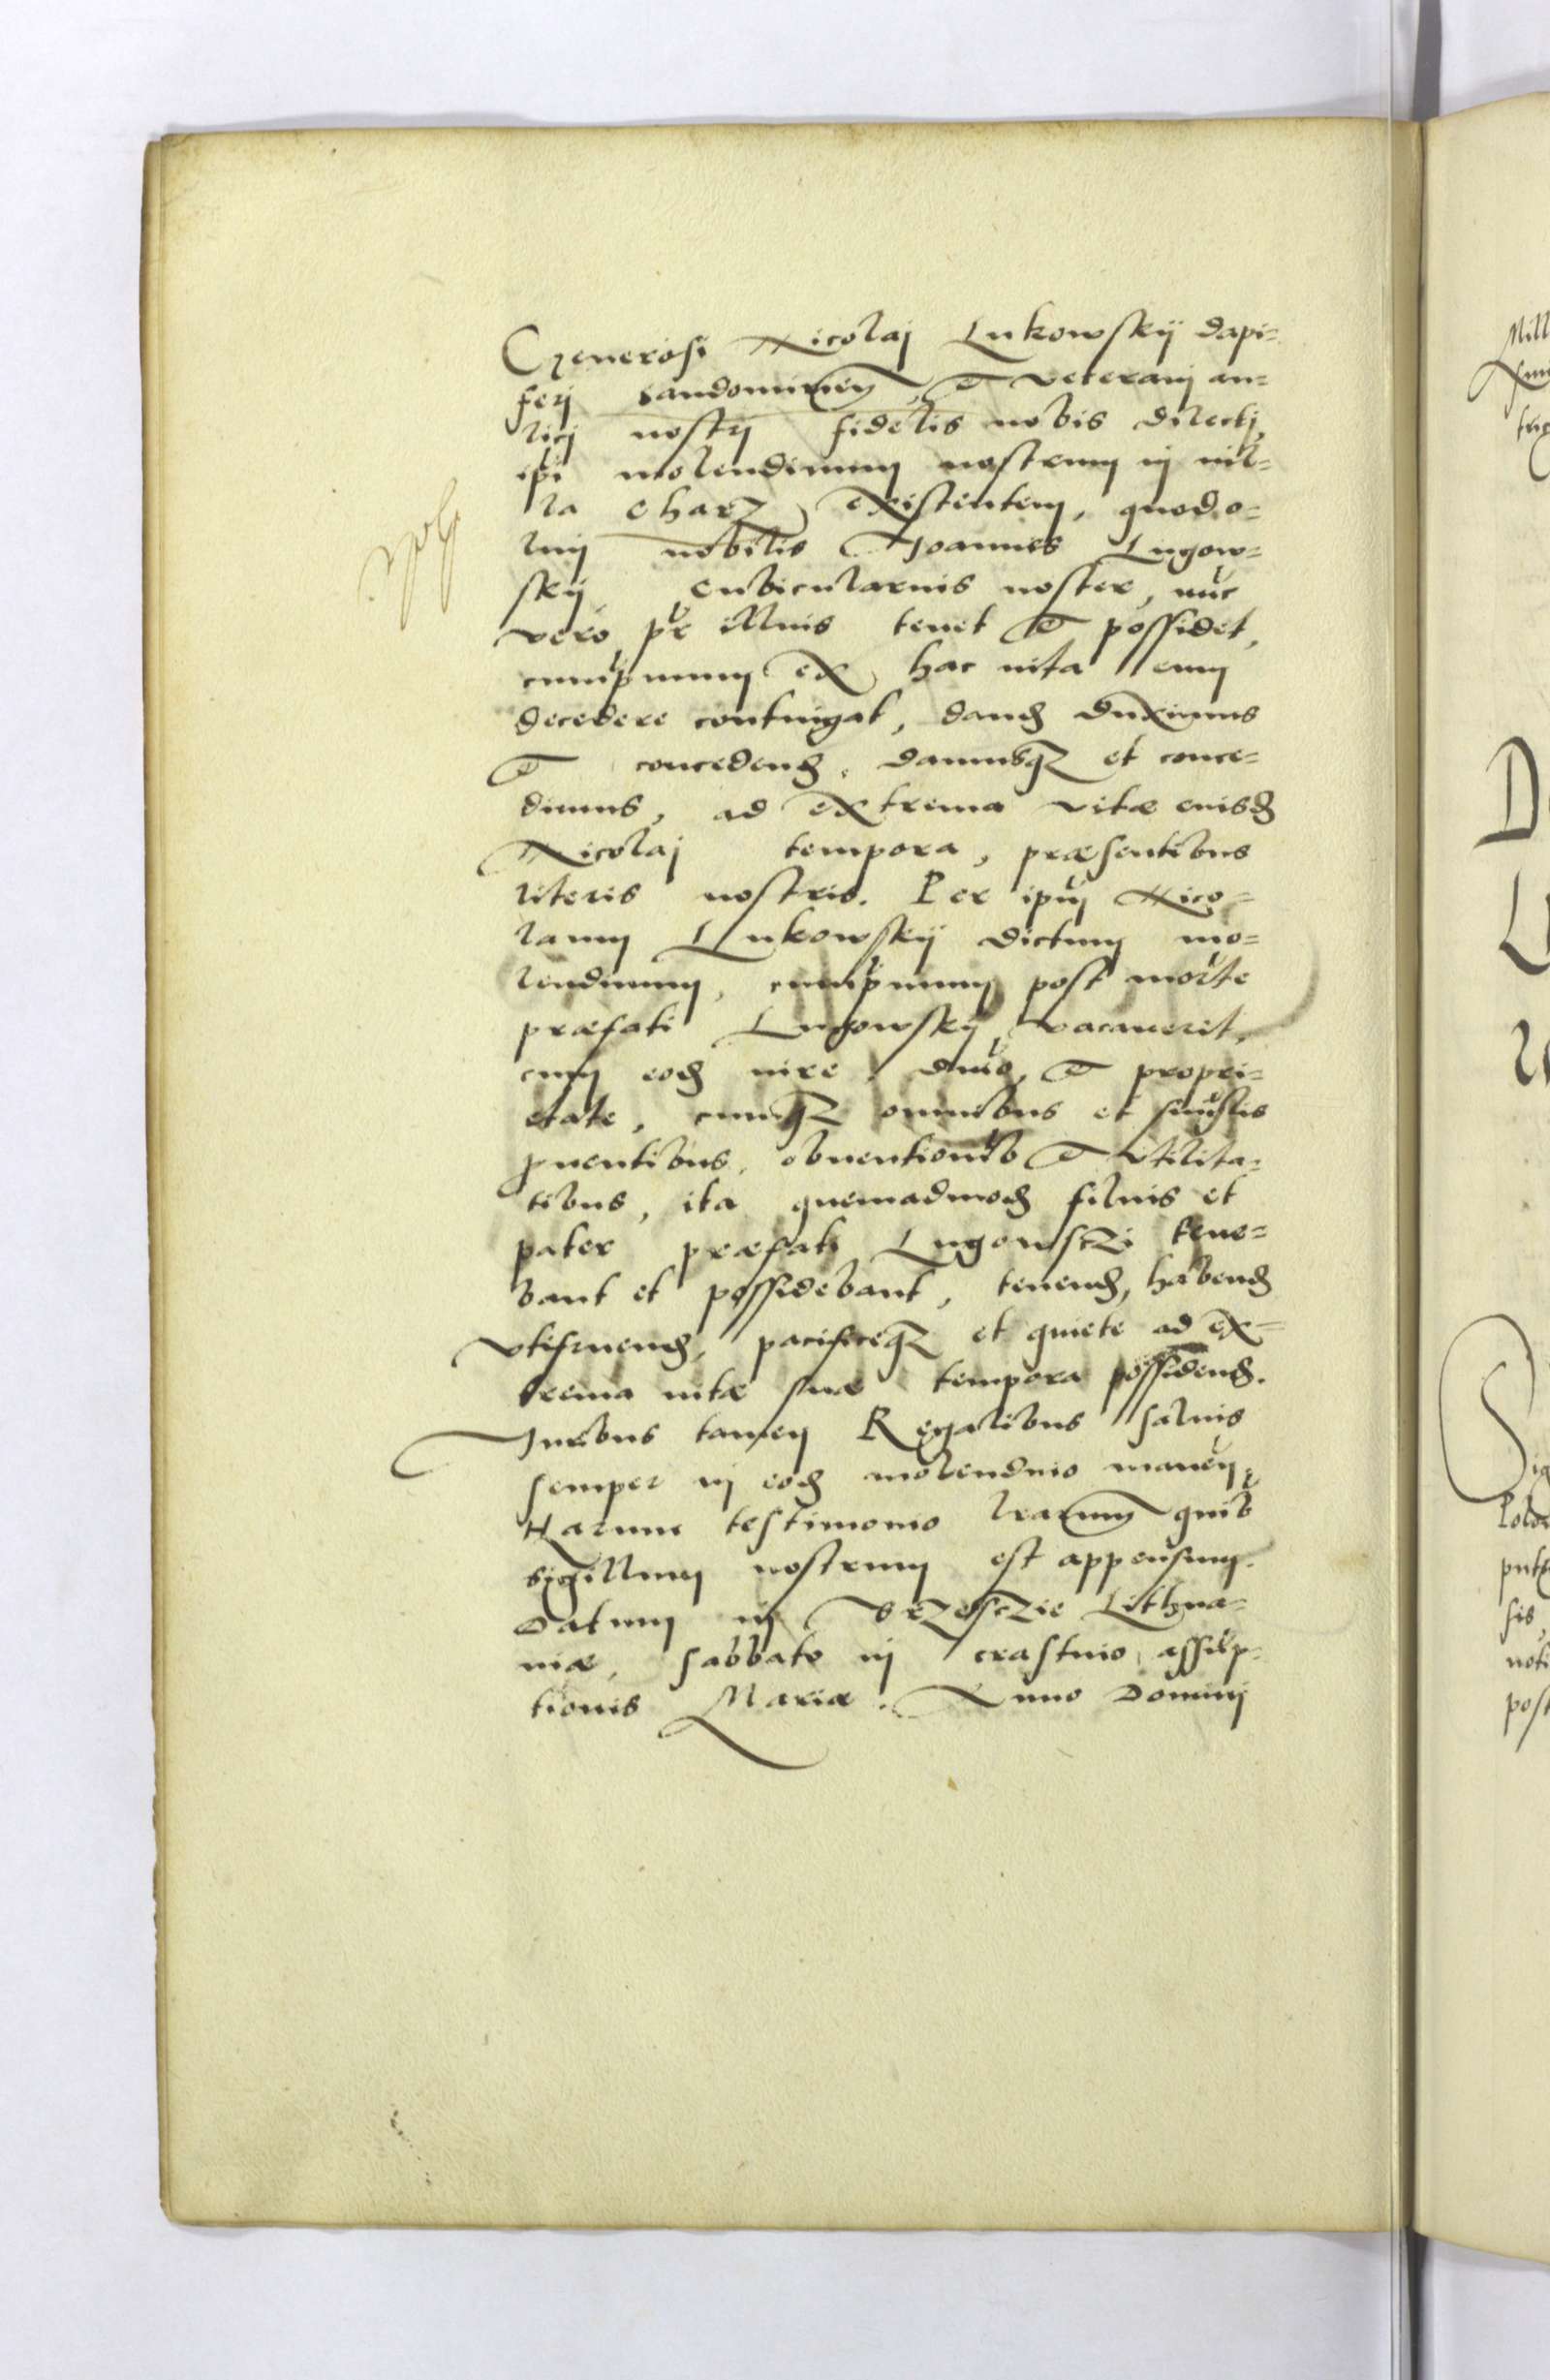 Generosi Nicolaj Lukowskÿ dapi=
ferj Sandomirien, & veteranj au=
licj nostrj fidelis nobis dilectj,
ipī molendinum nostrum in uil=
la Charz existentem, quod o=
lim nobilis Joannes Lugow=
skÿ, cubicularius noster, nūc
vero, pr̄ illius tenet & possidet,
cumprimum ex hac uita eum
decedere contingat, dand duximus
& concedend, damusq3 et conce=
dimus, ad extrema vitæ eiusd
Nicolaj tempora, præsentibus
literis nostris. Per ipm̄ Nico=
laum Lukowskÿ dictum mo=
lendinum, cumprimum post morte
præfati Lugowskÿ vacauerit,
cum eod iure, dn̄io, & propri=
etate, cumq3 omnibus et singlis
puentibus, obuentionib & vtilita=
tibus, ita quemadmod filius et
pater præfati Lugowsczi tene=
bant et possidebant, tenend, habend
vtifruend, pacificeq3 et quiete ad ex=
trema uitæ suæ tempora possidend.
Juribus tamen Regalibus saluis
semper in eod molendino manen̄.
Harum testimonio lrarum quib
sigillum nostrum est appensum.
Datum in Brzesczie Lithua=
niæ, sabbato in crastino assūp=
tionis Mariæ. Anno Dominj